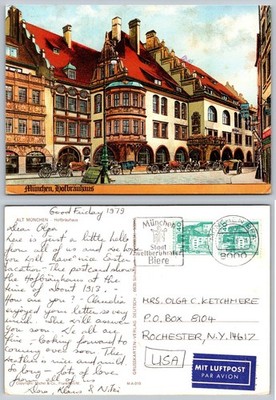 München, Hofbräuhaus
ALT MÜNCHEN · Hofbräuhaus
Good Friday 1979
Dear Olga,
here is just a little hello
from all of us and we hope
you will have nice Easter
vacation. The postcard shows
the Hofbräuhaus at the
time of about 1912.
How are you? Claudia
enjoyed your letter very
much. She will answer
you soon. We all are
fine. Looking forward to
coming over soon. The
weather is nice and could
do so long. Lots of love
from all of us
Klaus &
München
Stadt
weltberühmter
Biere
8000
MRS. OLGA C. KETCHMERE
P.O. BOX 8104
ROCHESTER, N.Y. 14617
USA
MIT LUFTPOST
PAR AVION